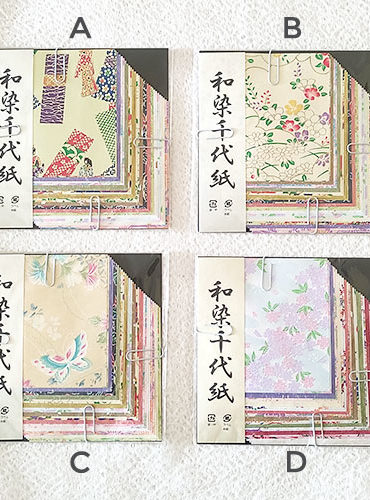 A
B
和染千代紙
和染千代紙
和染千代紙
和染千代紙
C
D